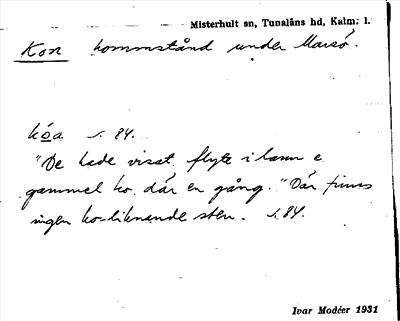 Misterhult sn, Tunaläns hd, Kalm. l.
Kon kommstånd under Marsö.
kóa s. 84.
"De hade visst flyte i lann e
gammel ko där en gång." Där finns
ingen ko-liknande sten. s. 84.
Ivar Modéer 1931